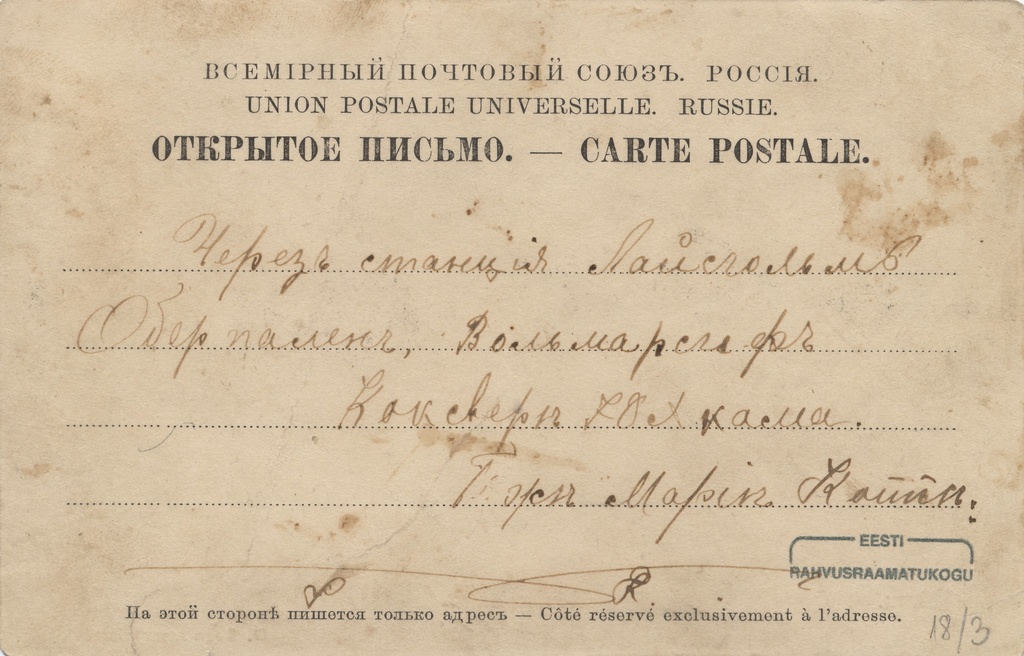 ВСЕМІРНЫЙ ПОЧТОВЫЙ СОЮЗЪ. РОССІЯ.
UNION POSTALE UNIVERSELLE. RUSSIE.
ОТКРЫТОЕ ПИСЬМО. — CARTE POSTALE.
Черезъ станція Лайсгольмъ
Оберпаленъ, Вольмарсгофъ
Коксверъ
Марін Коттн.
EESTI
RAHVUSRAAMATUKOGU
На этой сторонѣ пишется только адресъ — Côté réservé exclusivement à l'adresse.
18/3